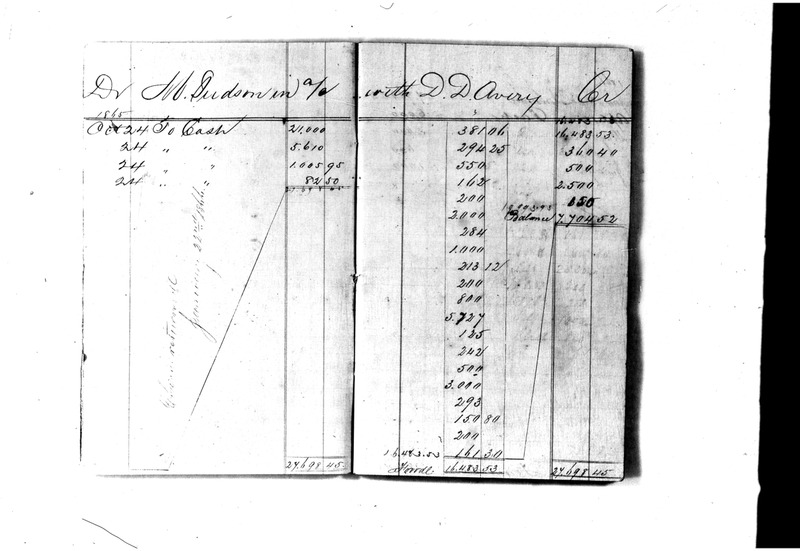 Dr M. Judson in a/c with D. D. Avery Cr
1865
Oct 24 To Cash 21.000
24 " " 5.610
24 " " 1.005 95
24 " " 82 50
27.698 45
January 22nd 1866
381 06
294 25
550
162
200
2.000
284
1.000
213 12
200
800
5.727
125
242
500
3.000
293
150 80
200
161 30
16.483 53
16.483 53
360 40
500
2.500
150
Balance 7.704 52
27.698 45